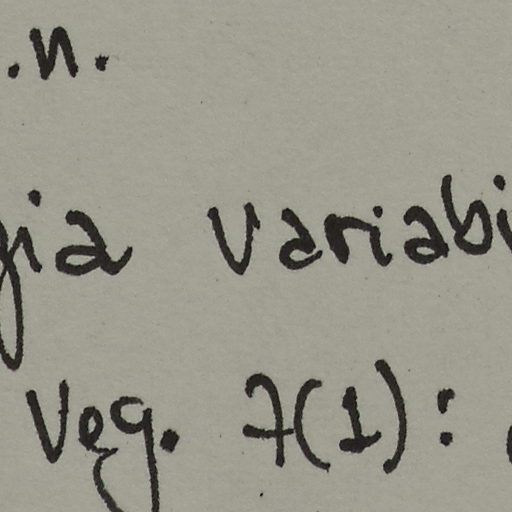 .n.
gia variabi
Veg. 7(1):